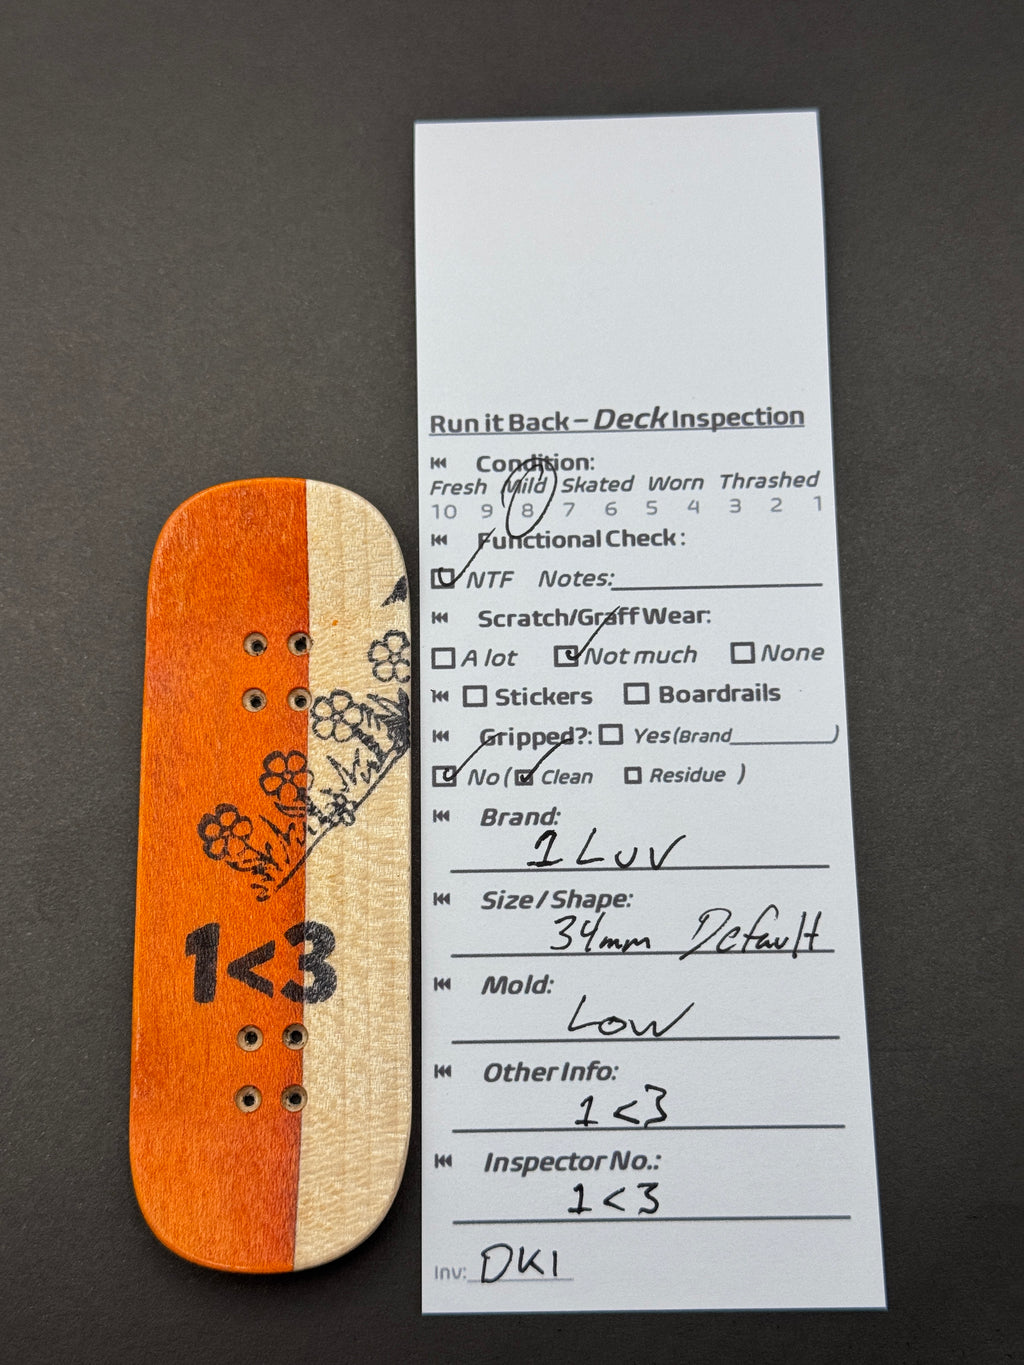 1<3
Run it Back – Deck Inspection
Condition:
Fresh Mild Skated Worn Thrashed
10 9 8 7 6 5 4 3 2 1
Functional Check:
NTF Notes:
Scratch/Graff Wear:
A lot Not much None
Stickers Boardrails
Gripped?: Yes (Brand )
No ( Clean Residue )
Brand:
1 Luv
Size/Shape:
34mm Default
Mold:
Low
Other Info:
1<3
Inspector No.:
1<3
Inv: DK1